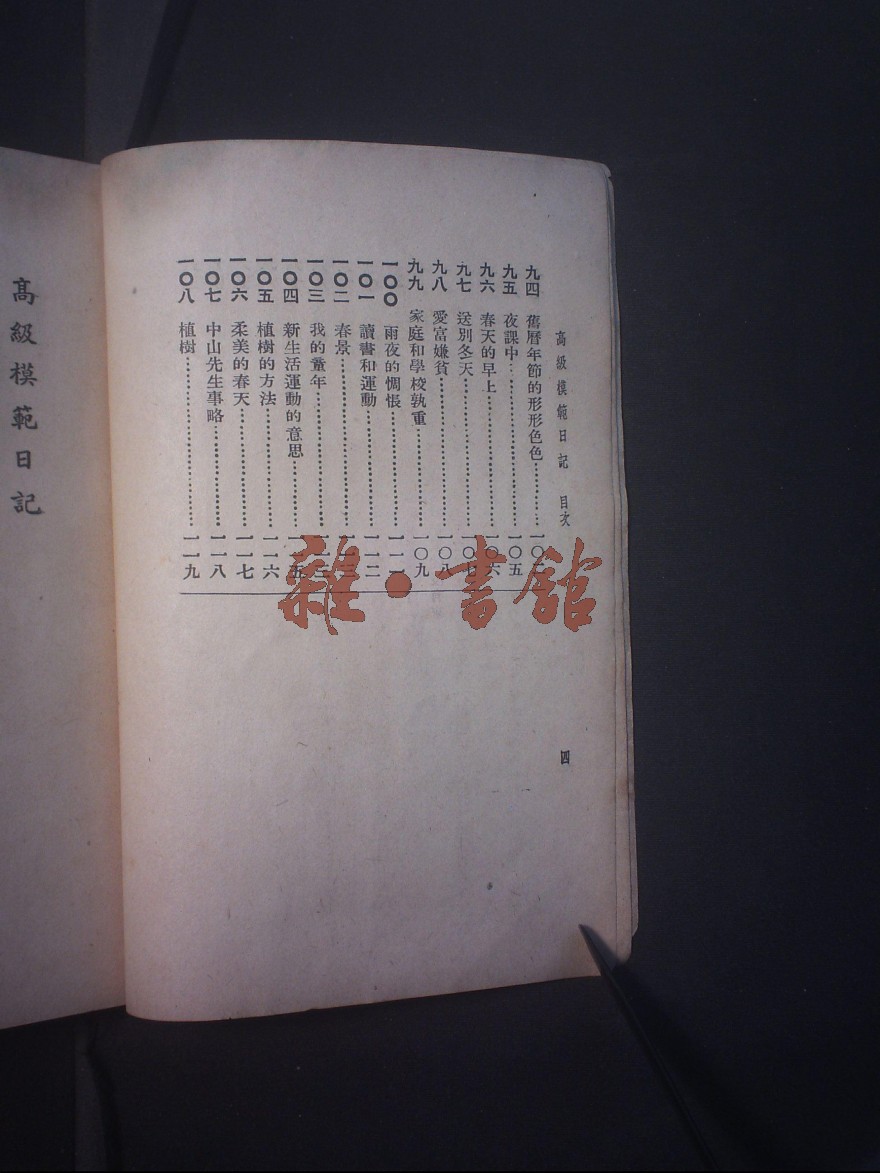 高級模範日記 目次
九四 舊曆年節的形形色色
九五 夜課中 一〇五
九六 春天的早上 一〇六
九七 送別冬天 一〇七
九八 愛富嫌貧 一〇八
九九 家庭和學校孰重 一〇九
一〇〇 雨夜的惆悵 一一一
一〇一 讀書和運動 一一二
一〇二 春景 一一三
一〇三 我的童年
一〇四 新生活運動的意思 一一五
一〇五 植樹的方法 一一六
一〇六 柔美的春天 一一七
一〇七 中山先生事略 一一八
一〇八 植樹 一一九
四
高級模範日記
雜·書館